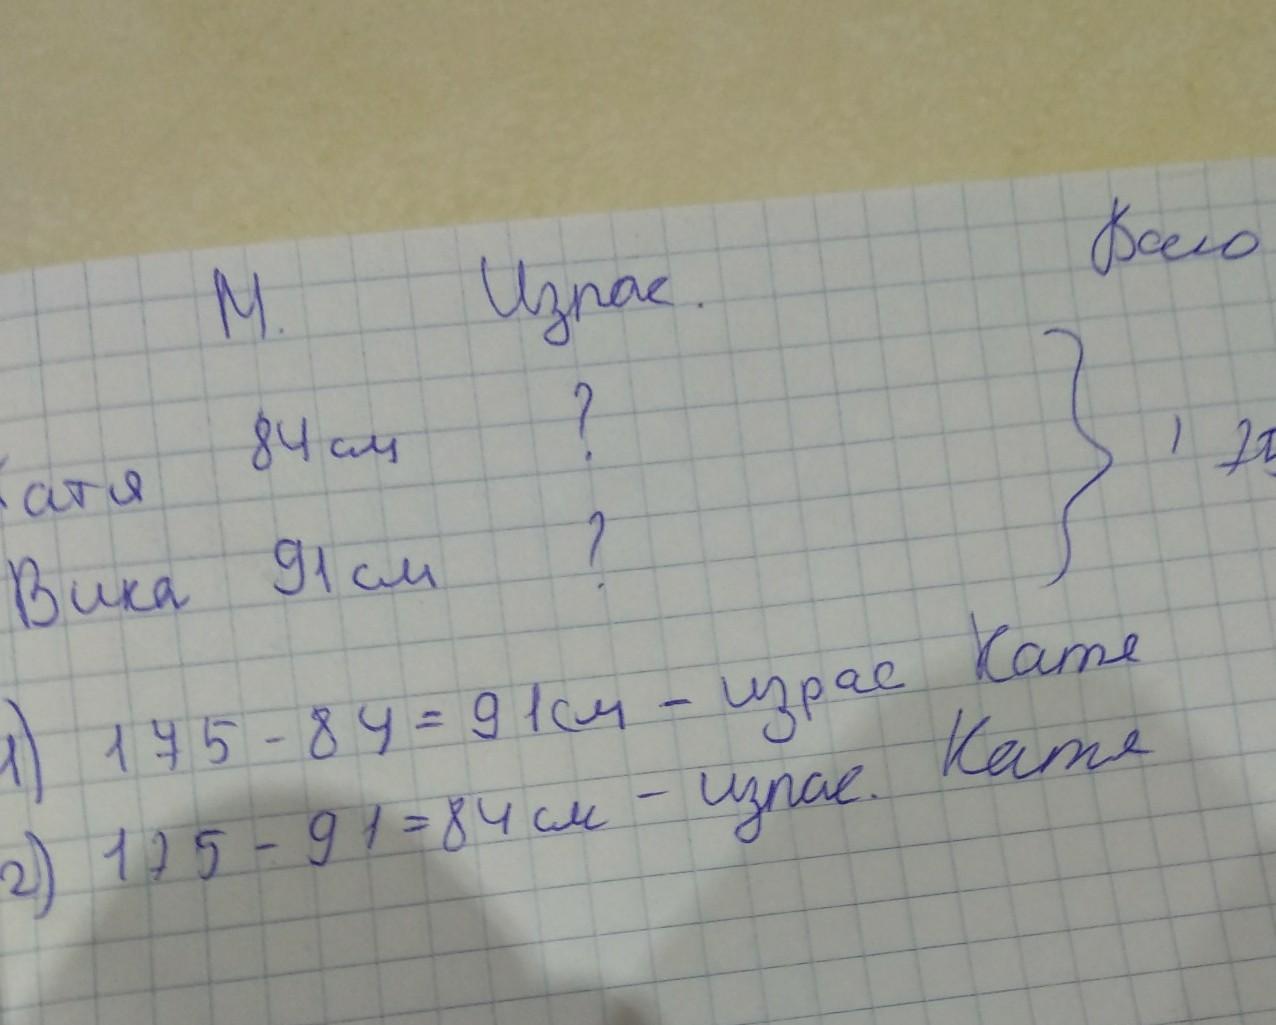 М. Израс. Всего
Катя 84 см ?
Вика 91 см ?
1) 175 - 84 = 91 см - израс Катя
2) 175 - 91 = 84 см - израс. Катя